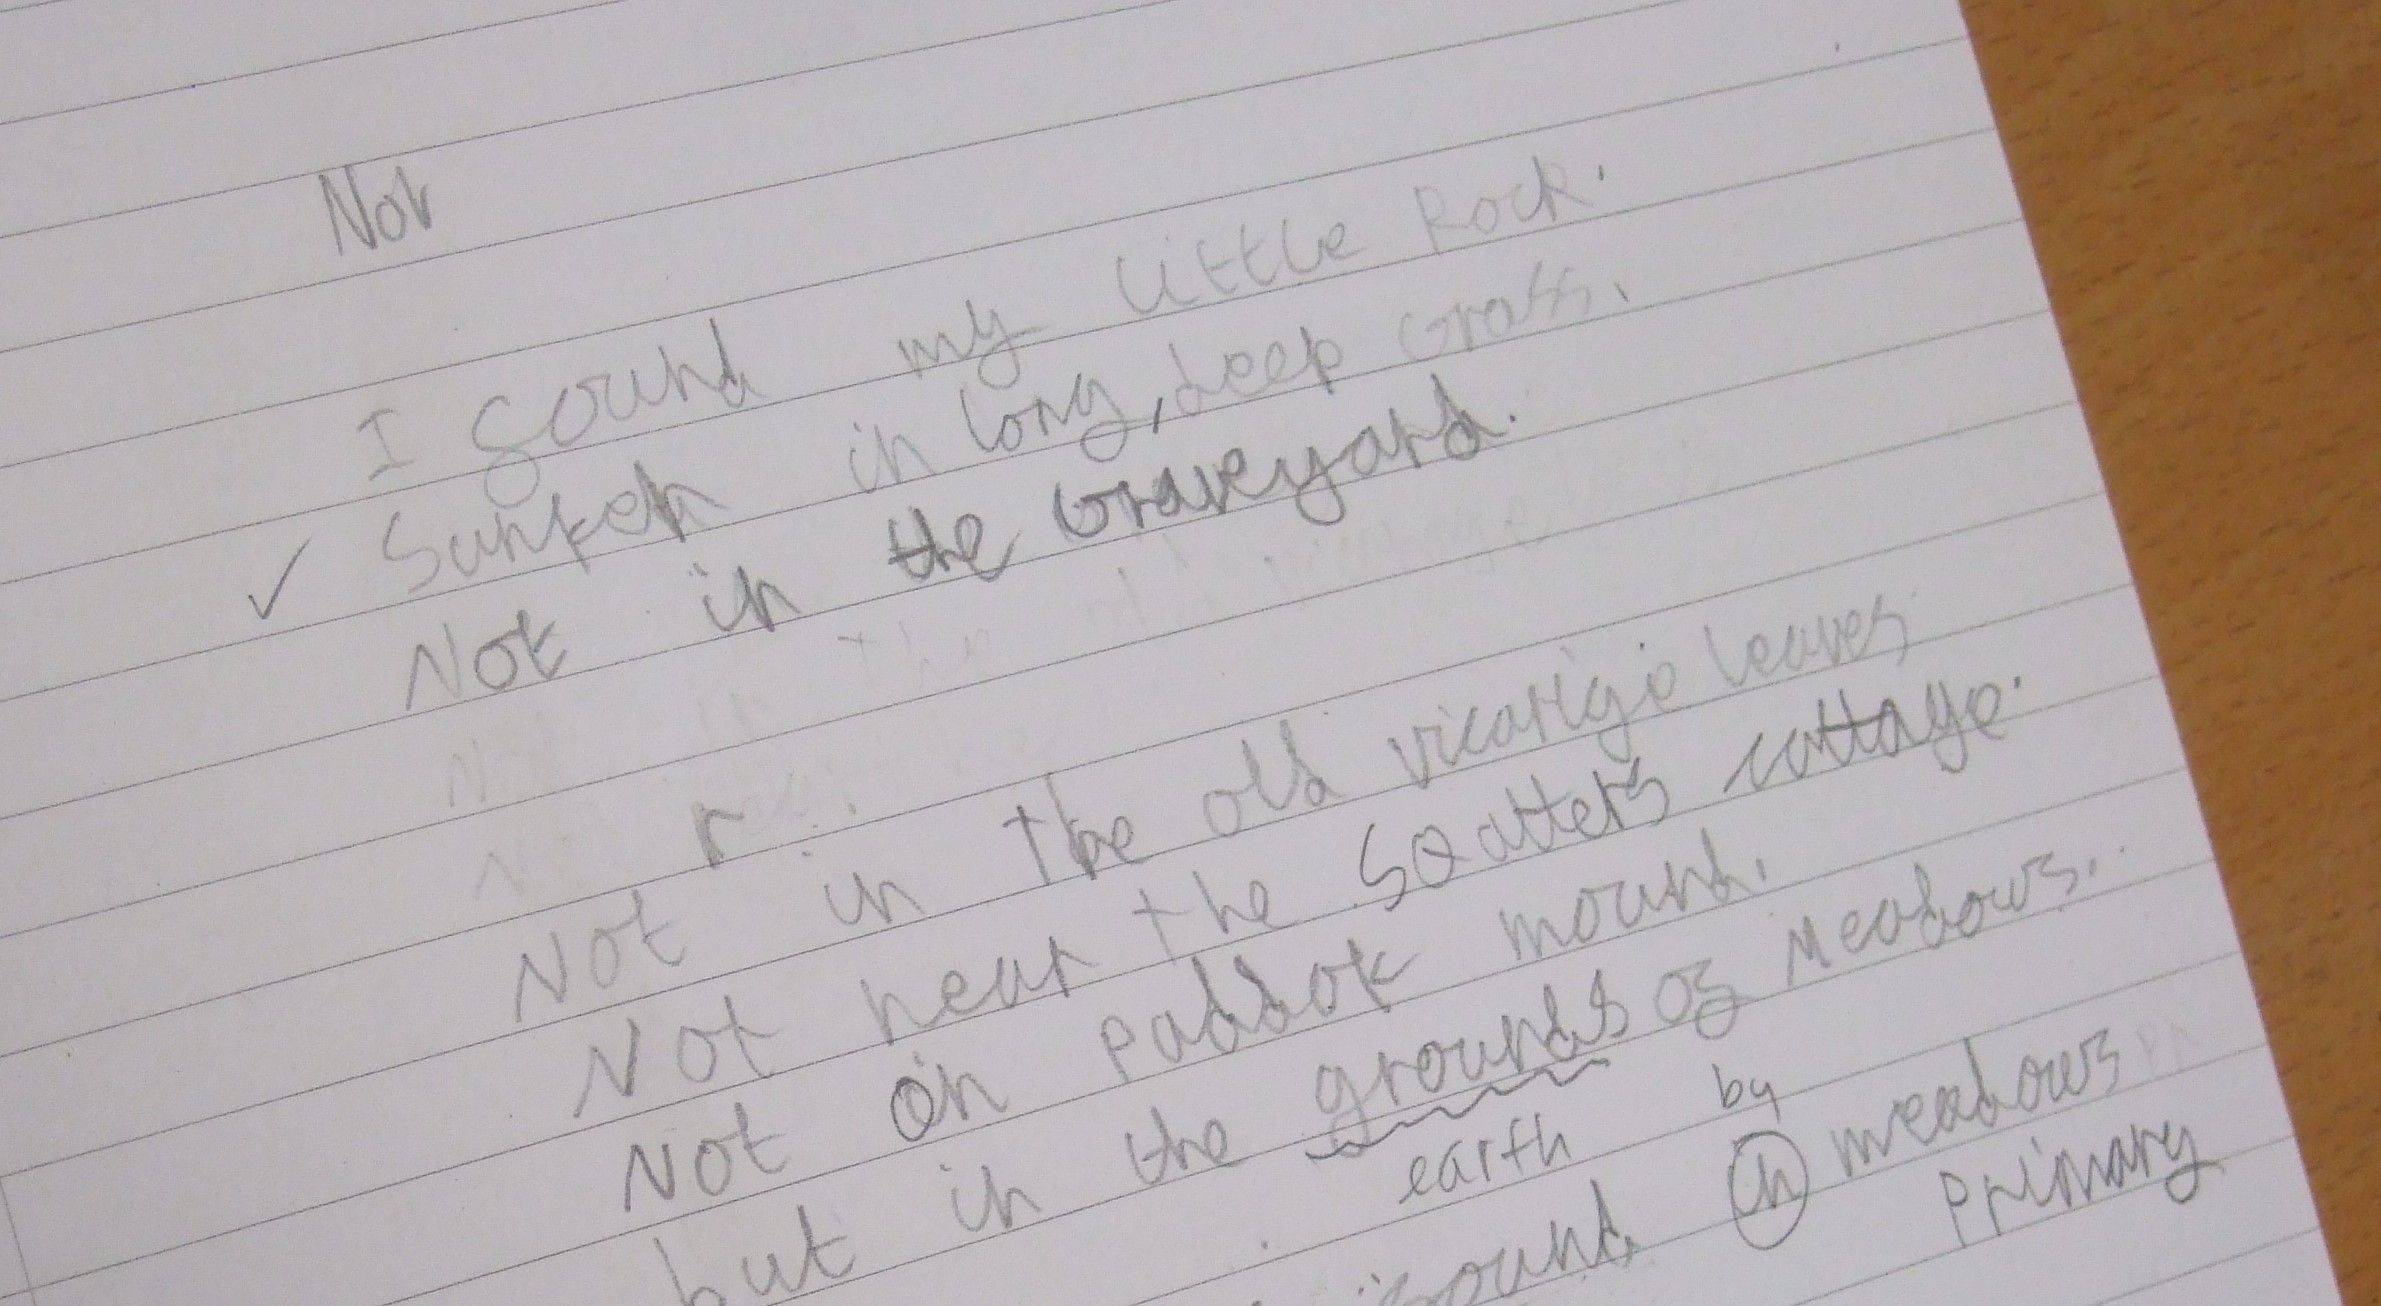 Not
I found my little Rock.
✓ Sunken in long, deep Grass.
Not in the Graveyard.
r
Not in the old vicarige leaves
Not near the Sqatters cottage.
Not on paddok mound.
but in the grounds of Meadows.
earth by
found in meadows
Primary